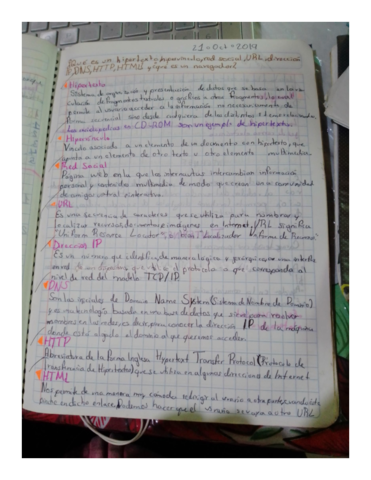 21-Oct-2019
Qué es un hipertexto, hipervínculo, red social, URL, dirección
IP, DNS, HTTP, HTML y que es un navegador
Hipertexto
Sistema de organización y presentación de datos que se basa en la
de fragmentos textuales o gráficos a otros fragmentos, lo cual
permite al usuario acceder a la información no necesariamente de
forma secuencial sino desde cualquiera de los distintos
Las enciclopedias en CD-ROM son un ejemplo de hipertexto.
Hipervínculo
asociado a un elemento de un documento con hipertexto, que
apunta a un elemento de otro texto u otro elemento multimedia.
Red Social
Página web en la que los internautas intercambian información
personal y contenidos multimedia de modo que crean una comunidad
de amigos virtual e interactiva.
URL
Es una secuencia de caracteres que se utiliza para nombrar y
localizar recursos, documentos e imágenes en Internet, URL significa
"Uniform Resource Locator", o bien, "Localizador Uniforme de Recursos"
Dirección IP
Es un número que identifica, de manera lógica y jerárquica, a una interfaz
en red de un dispositivo que utilice el protocolo o que corresponda al
nivel de red del modelo TCP/IP.
DNS
Son las iniciales de Domain Name System (Sistema de Nombre de Dominio)
y es una tecnología basada en una base de datos que sirve para resolver
nombres en las redes, es decir, para conocer la dirección IP de la máquina
donde está alojado el dominio al que queremos acceder.
HTTP
Abreviatura de la forma inglesa Hypertext Transfer Protocol (Protocolo de
transferencia de Hipertextos), que se utiliza en algunas direcciones de internet
HTML
Nos permite de una manera muy cómoda redirigir al usuario a otra parte,
dicho enlace. Podemos hacer que el usuario se vaya a otra URL